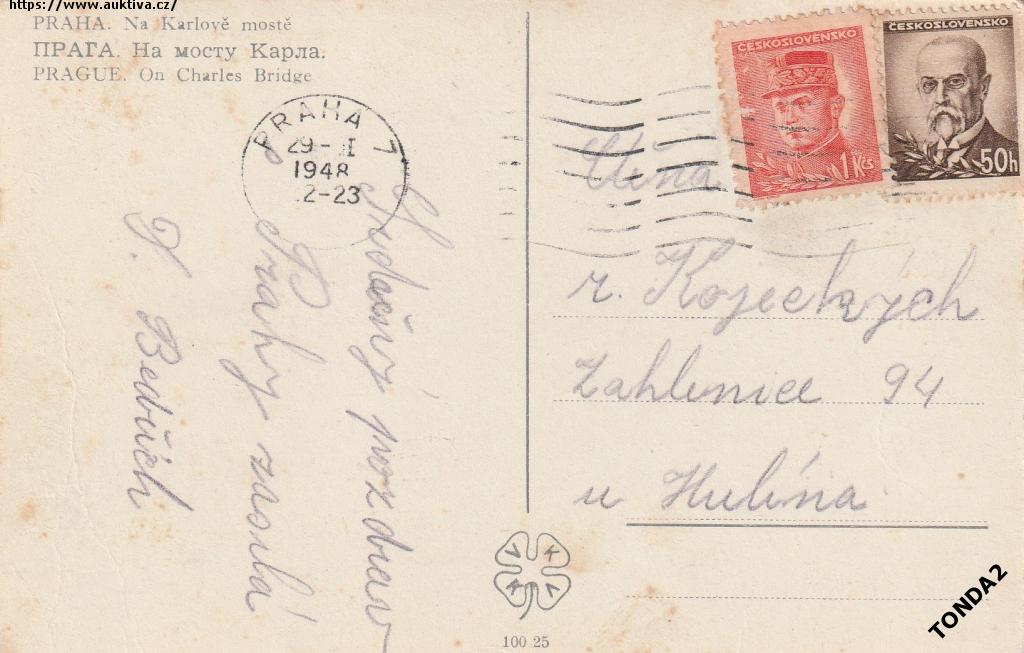 https://www.auktiva.cz/
PRAHA. Na Karlově mostě
ПРАГА. На мосту Карла.
PRAGUE. On Charles Bridge
PRAHA 7
29-II
1948
2-23
ČESKOSLOVENSKO
1 Kčs
ČESKOSLOVENSKO
50h
Srdečný pozdrav
z Prahy zasílá
Bedřich
Ctěná
r. Kojeckých
Zahlenice 94
u Hulína
100 25
TONDA2